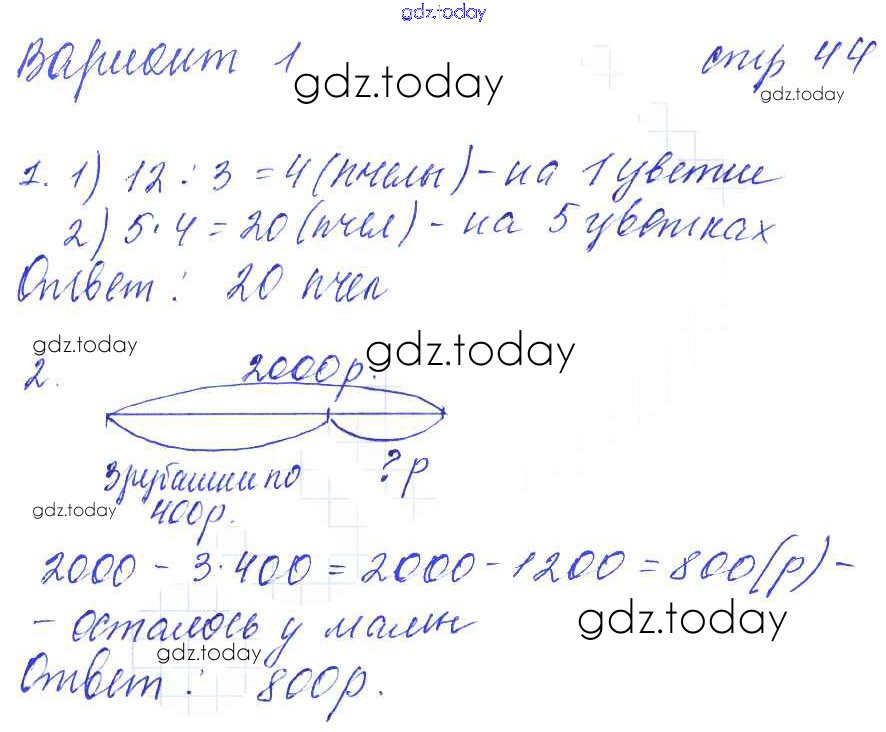 gdz.today
Вариант 1 стр 44
gdz.today
gdz.today
1. 1) 12 : 3 = 4 (пчелы) - на 1 цветке
2) 5 · 4 = 20 (пчел) - на 5 цветках
Ответ : 20 пчел
gdz.today
gdz.today
2. 2000р.
3 рубашки по ? р
400р.
gdz.today
2000 - 3 · 400 = 2000 - 1200 = 800 (р) -
- осталось у мамы
gdz.today
gdz.today
Ответ : 800р.